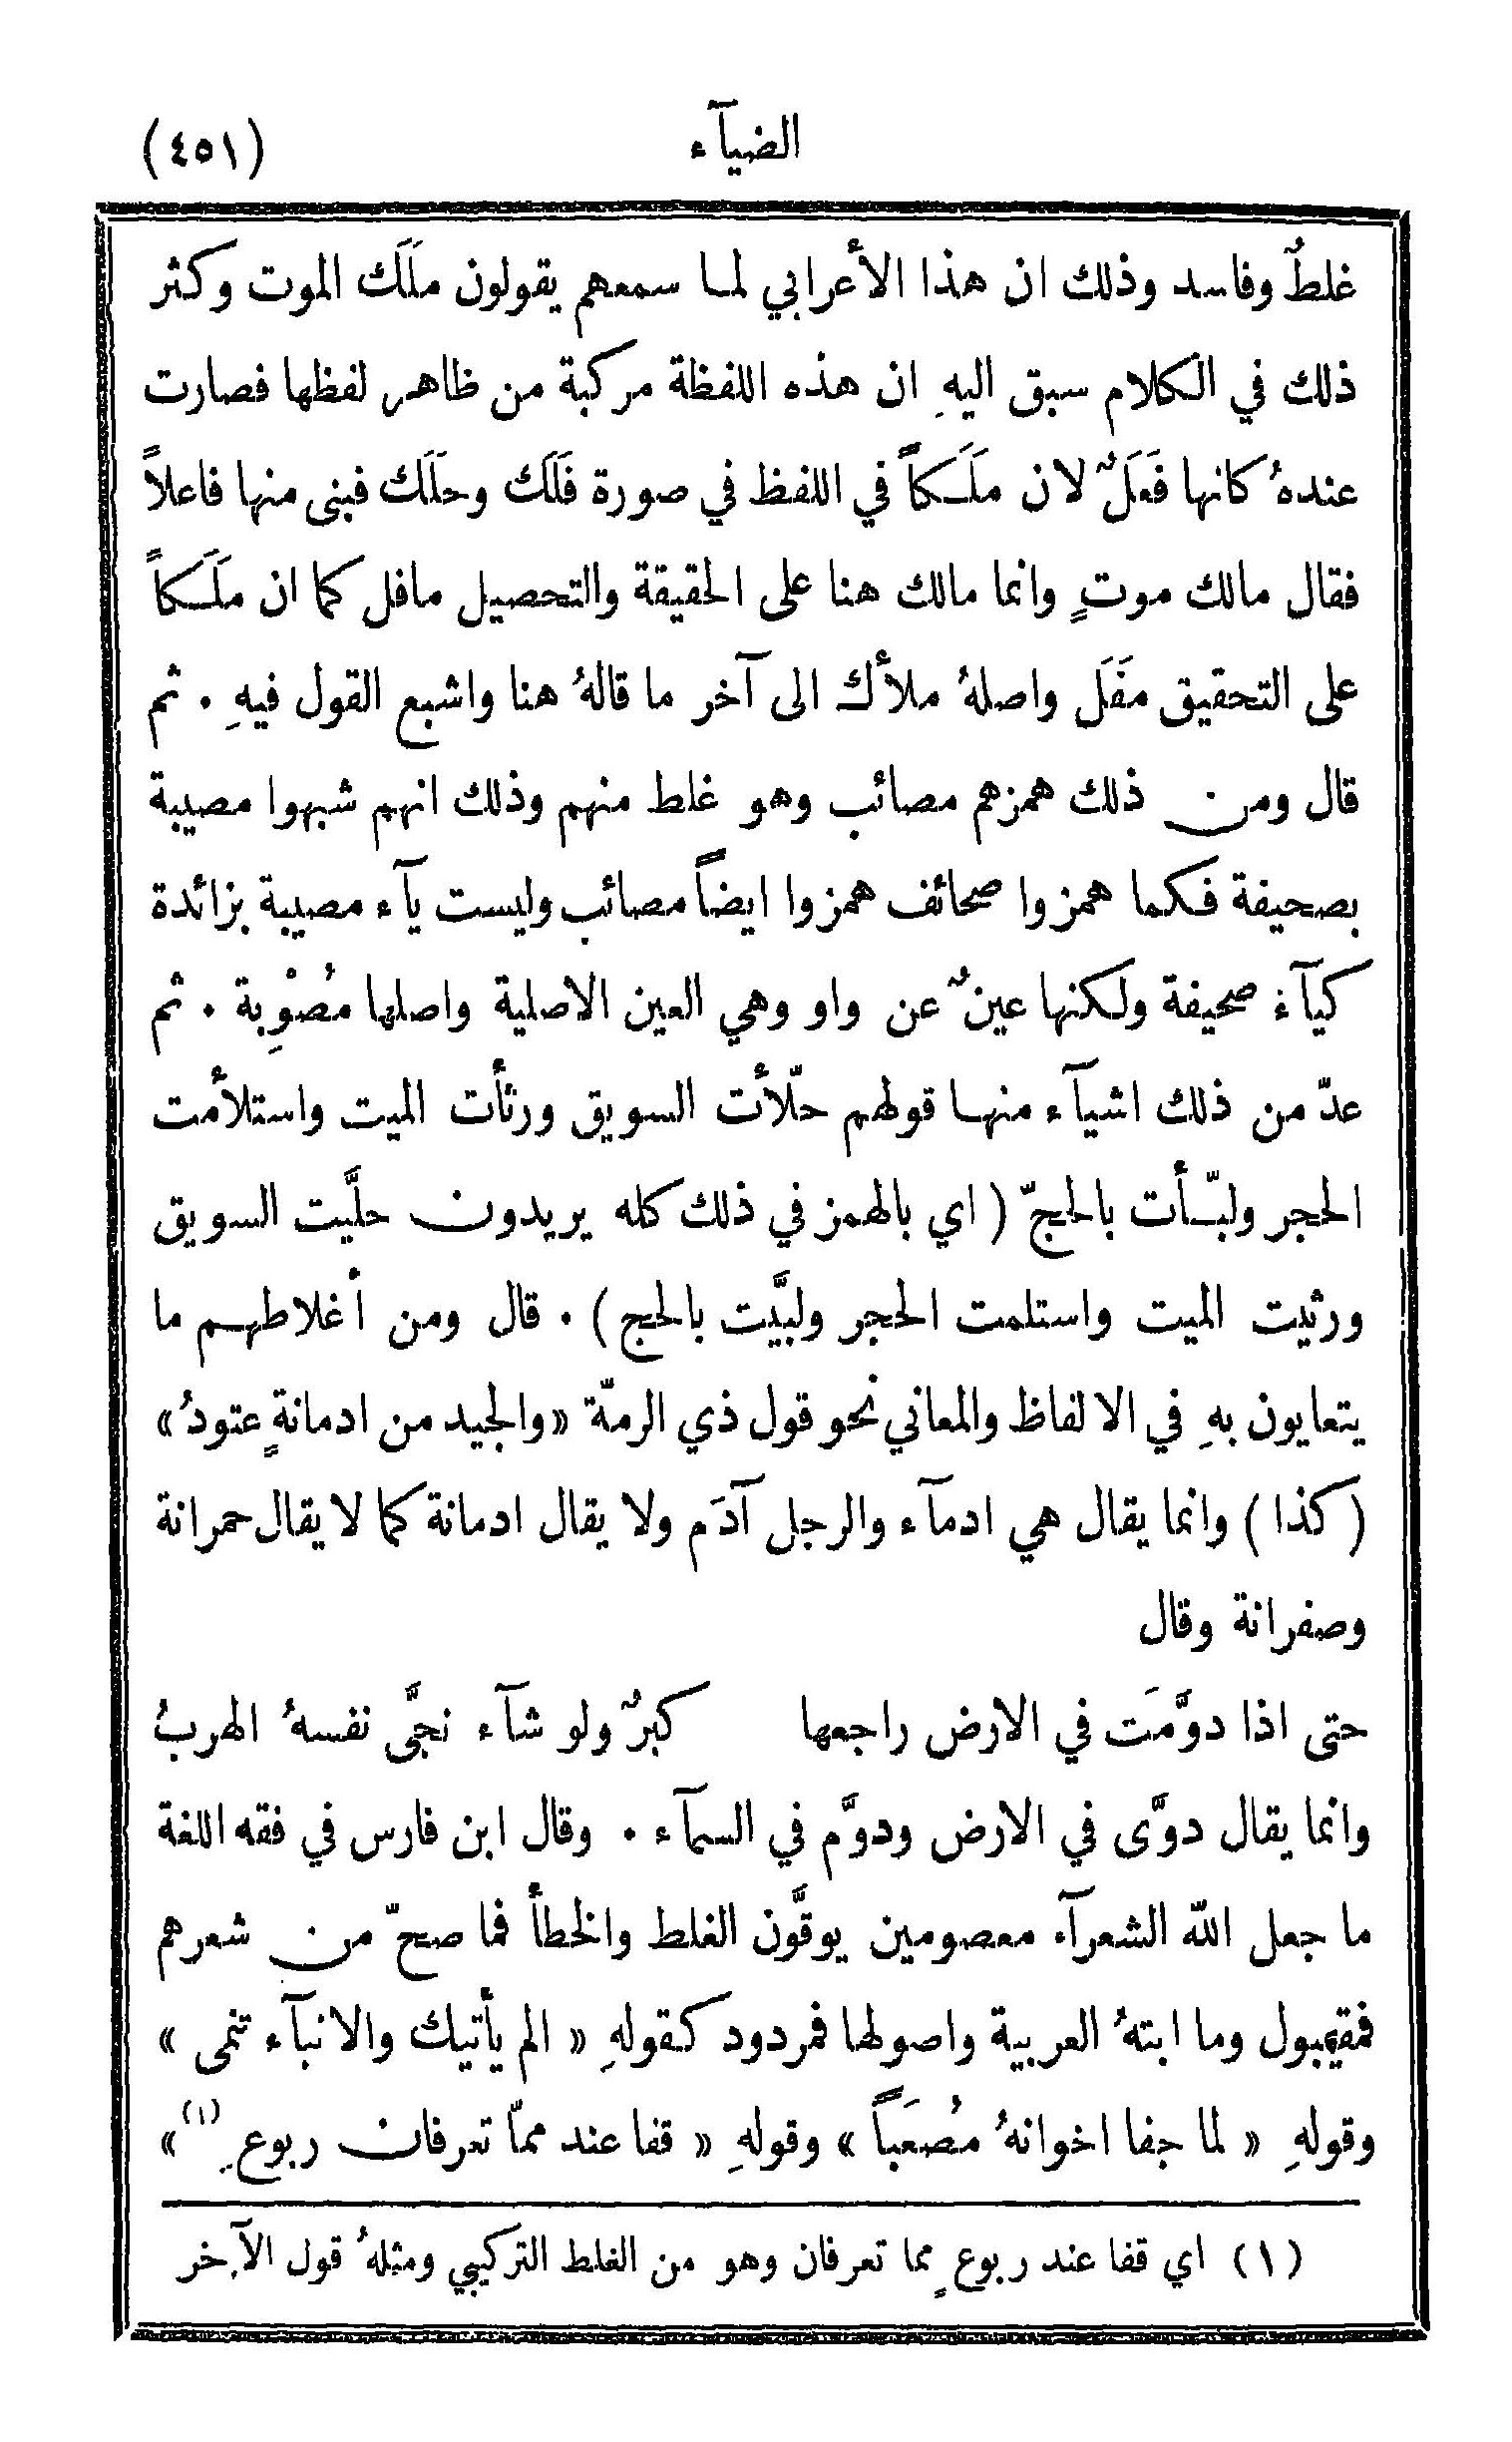 الضيآء (٤٥١)
غلطٌ وفاسد وذلك ان هذا الأعرابي لما سمعهم يقولون ملَك الموت وكثر
ذلك في الكلام سبق اليهِ ان هذه اللفظة مركبة من ظاهر لفظها فصارت
عندهُ كانها فَعَلٌ لان ملَكاً في اللفظ في صورة فَلَك وحلَك فبنى منها فاعلاً
فقال مالك موتٍ وانما مالك هنا على الحقيقة والتحصيل مافل كما ان ملَكاً
على التحقيق مَفَل واصلهُ ملأك الى آخر ما قالهُ هنا واشبع القول فيهِ . ثم
قال ومن ذلك همزهم مصائب وهو غلط منهم وذلك انهم شبهوا مصيبة
بصحيفة فكما همزوا صحائف همزوا ايضاً مصائب وليست يآء مصيبة بزائدة
كيآء صحيفة ولكنها عينٌ عن واو وهي العين الاصلية واصلها مُصْوِبة . ثم
عدّ من ذلك اشيآء منها قولهم حلّأت السويق ورثأت الميت واستلأمت
الحجر ولبّأت بالحجّ ( اي بالهمز في ذلك كله يريدون حلَّيت السويق
ورثيت الميت واستلمت الحجر ولبَّيت بالحج ) . قال ومن أغلاطهم ما
يتعايون بهِ في الالفاظ والمعاني نحو قول ذي الرمّة «والجيد من ادمانةٍ عتودُ»
( كذا ) وانما يقال هي ادمآء والرجل آدَم ولا يقال ادمانة كما لا يقال حمرانة
وصفرانة وقال
حتى اذا دوَّمَت في الارض راجعها كبرٌ ولو شآء نجَّى نفسهُ الهربُ
وانما يقال دوَّى في الارض ودوَّم في السمآء . وقال ابن فارس في فقه اللغة
ما جعل الله الشعرآء معصومين يوقَّون الغلط والخطأ فما صحّ من شعرهم
فمقبول وما ابتهُ العربية واصولها فمردود كقولهِ « الم يأتيك والانبآء تنمى »
وقولهِ « لما جفا اخوانهُ مُصعَباً » وقولهِ « قفا عند ممّا تعرفان ربوعِ (١) »
(١) اي قفا عند ربوعٍ مما تعرفان وهو من الغلط التركيبي ومثلهُ قول الآخر